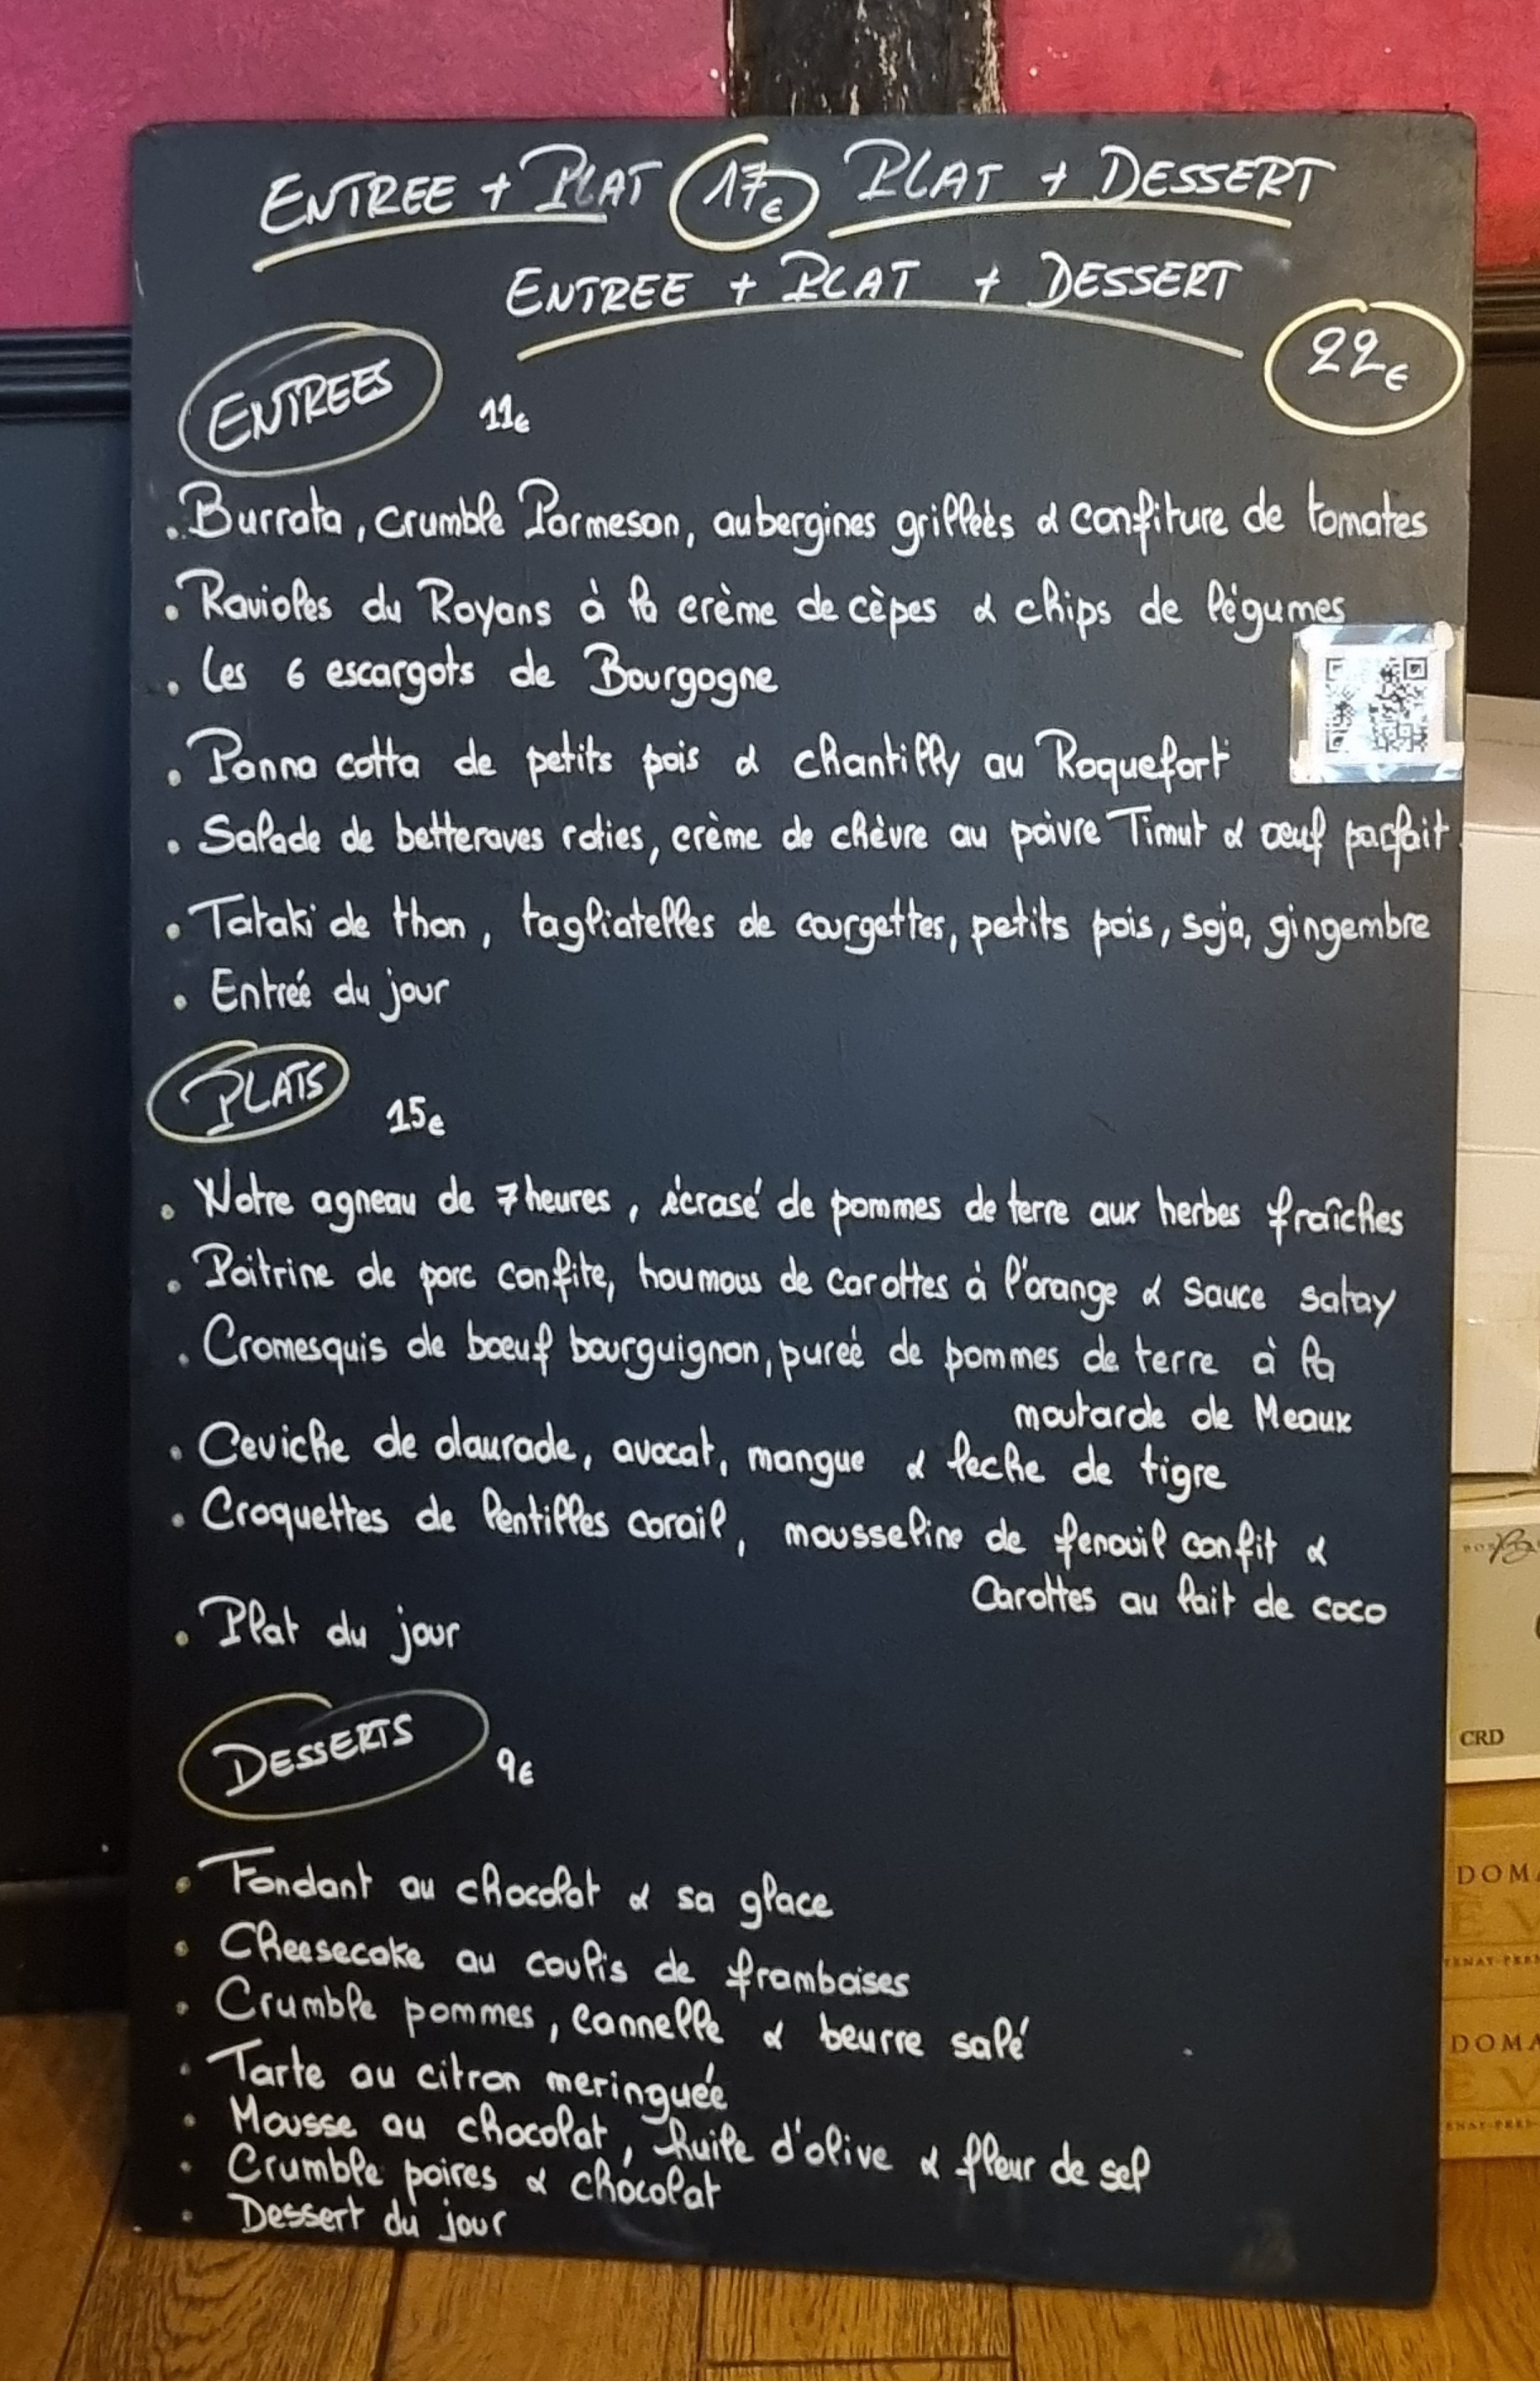 ENTREE + PLAT 17€ PLAT + DESSERT
ENTREE + PLAT + DESSERT
22€
ENTREES 11€
. Burrata, crumble Parmesan, aubergines grilleés & confiture de tomates
. Ravioles du Royans à la crème de cèpes & chips de légumes
. Les 6 escargots de Bourgogne
. Panna cotta de petits pois & chantilly au Roquefort
. Salade de betteraves roties, crème de chèvre au poivre Timut & oeuf parfait
. Tataki de thon, tagliatelles de courgettes, petits pois, soja, gingembre
. Entreé du jour
PLATS 15€
. Notre agneau de 7 heures, écrasé de pommes de terre aux herbes fraîches
. Poitrine de porc confite, houmous de carottes à l'orange & sauce satay
. Cromesquis de bœuf bourguignon, pureé de pommes de terre à la
moutarde de Meaux
. Ceviche de daurade, avocat, mangue & leche de tigre
. Croquettes de lentilles corail, mousseline de fenouil confit &
Carottes au lait de coco
. Plat du jour
DESSERTS 9€
. Fondant au chocolat & sa glace
. Cheesecake au coulis de framboises
. Crumble pommes, cannelle & beurre salé
. Tarte au citron meringuée
. Mousse au chocolat, huile d'olive & fleur de sel
. Crumble poires & chocolat
. Dessert du jour
CRD